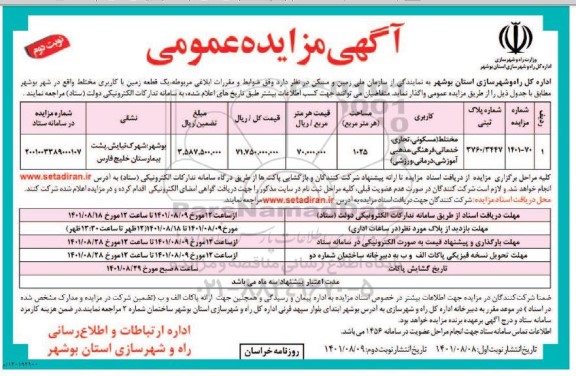 آگهی مزایده عمومی
نوبت دوم
وزارت راه و شهرسازی
اداره کل راه و شهرسازی استان بوشهر
اداره کل راه‌وشهرسازی استان بوشهر به نمایندگی از سازمان ملی زمین و مسکن در نظر دارد وفق ضوابط و مقررات ابلاغی مربوطه یک قطعه زمین با کاربری مختلط واقع در شهر بوشهر
مطابق با جدول ذیل را از طریق مزایده عمومی واگذار نماید. متقاضیان می توانند جهت کسب اطلاعات بیشتر طبق تاریخ های اعلام شده، به سامانه تدارکات الکترونیکی دولت (ستاد) مراجعه نمایند.
ردیف شماره مزایده شماره پلاک ثبتی کاربری مساحت (هر متر مربع) قیمت هر متر مربع / ریال قیمت کل / ریال مبلغ تضمین/ریال نشانی شماره مزایده در سامانه ستاد
۱ ۱۴۰۱-۷۰ ۳۷۶۰/۳۴۴۷ مختلط(مسکونی،تجاری، خدماتی،فرهنگی،مذهبی آموزشی،درمانی و ورزشی) ۱۰۲۵ ۷۰,۰۰۰,۰۰۰ ۷۱,۷۵۰,۰۰۰,۰۰۰ ۳,۵۸۷,۵۰۰,۰۰۰ بوشهر؛شهرک نیایش،پشت بیمارستان خلیج فارس ۲۰۰۱۰۰۳۳۸۹۰۰۰۱۰۷
کلیه مراحل برگزاری مزایده از دریافت اسناد مزایده تا ارائه پیشنهاد شرکت کنندگان و بازگشایی پاکت ها از طریق درگاه سامانه تدارکات الکترونیکی (ستاد) به آدرس www.setadiran.ir
انجام خواهد شد. و لازم است شرکت کنندگان در صورت عدم عضویت قبلی، کلیه مراحل ثبت نام در سایت مذکور را جهت دریافت گواهی امضای الکترونیکی اقدام کرده و در مزایده انجام شده شرکت نمایند.
محل دریافت اسناد مزایده: شرکت کنندگان جهت دریافت اسناد مزایده به آدرس www.setadiran.ir مراجعه نمایند.
مهلت دریافت اسناد از طریق سامانه تدارکات الکترونیکی دولت (ستاد) ازساعت۱۲مورخ ۱۴۰۱/۰۸/۰۹ تا ساعت ۱۲ مورخ ۱۴۰۱/۰۸/۱۸
مهلت بازدید از پلاک مورد نظر(در ساعات اداری) مورخ۱۴۰۱/۰۸/۰۹ تا ۱۴۰۱/۰۸/۱۸
مهلت بارگذاری و پیشنهاد قیمت به صورت الکترونیکی در سامانه ستاد ازساعت۱۲مورخ ۱۴۰۱/۰۸/۰۹ تا ساعت ۱۲ مورخ ۱۴۰۱/۰۸/۲۸
مهلت تحویل نسخه فیزیکی پاکات الف و ب به دبیرخانه ساختمان شماره دو ازساعت۱۲مورخ ۱۴۰۱/۰۸/۰۹ تا ساعت ۱۲ مورخ ۱۴۰۱/۰۸/۲۸
تاریخ گشایش پاکات ساعت ۸ صبح مورخ ۱۴۰۱/۰۸/۲۹
مدت اعتبار پیشنهاد سه ماه می باشد
ضمنا شرکت کنندگان در مزایده جهت اطلاعات بیشتر در خصوص اسناد مزایده به اداره پیمان و رسیدگی و همچنین جهت ارائه پاکات الف و ب (تضمین شرکت در مزایده و مدارک مشخص شده
در اسناد) در موعد مقرر به دبیرخانه اداره کل راه و شهرسازی به آدرس بوشهر ابتدای بلوار سپهبد قرنی اداره کل راه و شهرسازی استان بوشهر ساختمان شماره ۲ مراجعه نمایند.در ضمن هزینه کارمزد
سامانه ستاد و درج آگهی برعهده برنده مزایده خواهد بود.
اطلاعات تماس سامانه ستاد جهت انجام مراحل عضویت در سامانه ۱۴۵۶ می باشد.
تاریخ انتشار نوبت اول: ۱۴۰۱/۰۸/۰۸ تاریخ انتشار نوبت دوم: ۱۴۰۱/۰۸/۰۹
روزنامه خراسان
اداره ارتباطات و اطلاع‌رسانی
راه و شهرسازی استان بوشهر